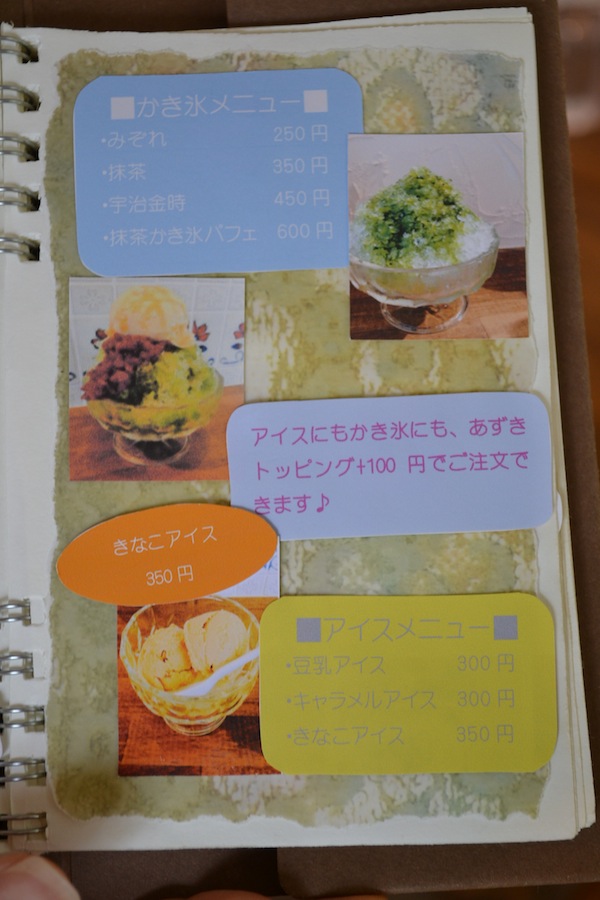 ■かき氷メニュー■
・みぞれ 250円
・抹茶 350円
・宇治金時 450円
・抹茶かき氷パフェ 600円
アイスにもかき氷にも、あずき
トッピング+100 円でご注文で
きます♪
きなこアイス
350円
■アイスメニュー■
・豆乳アイス 300円
・キャラメルアイス 300円
・きなこアイス 350円